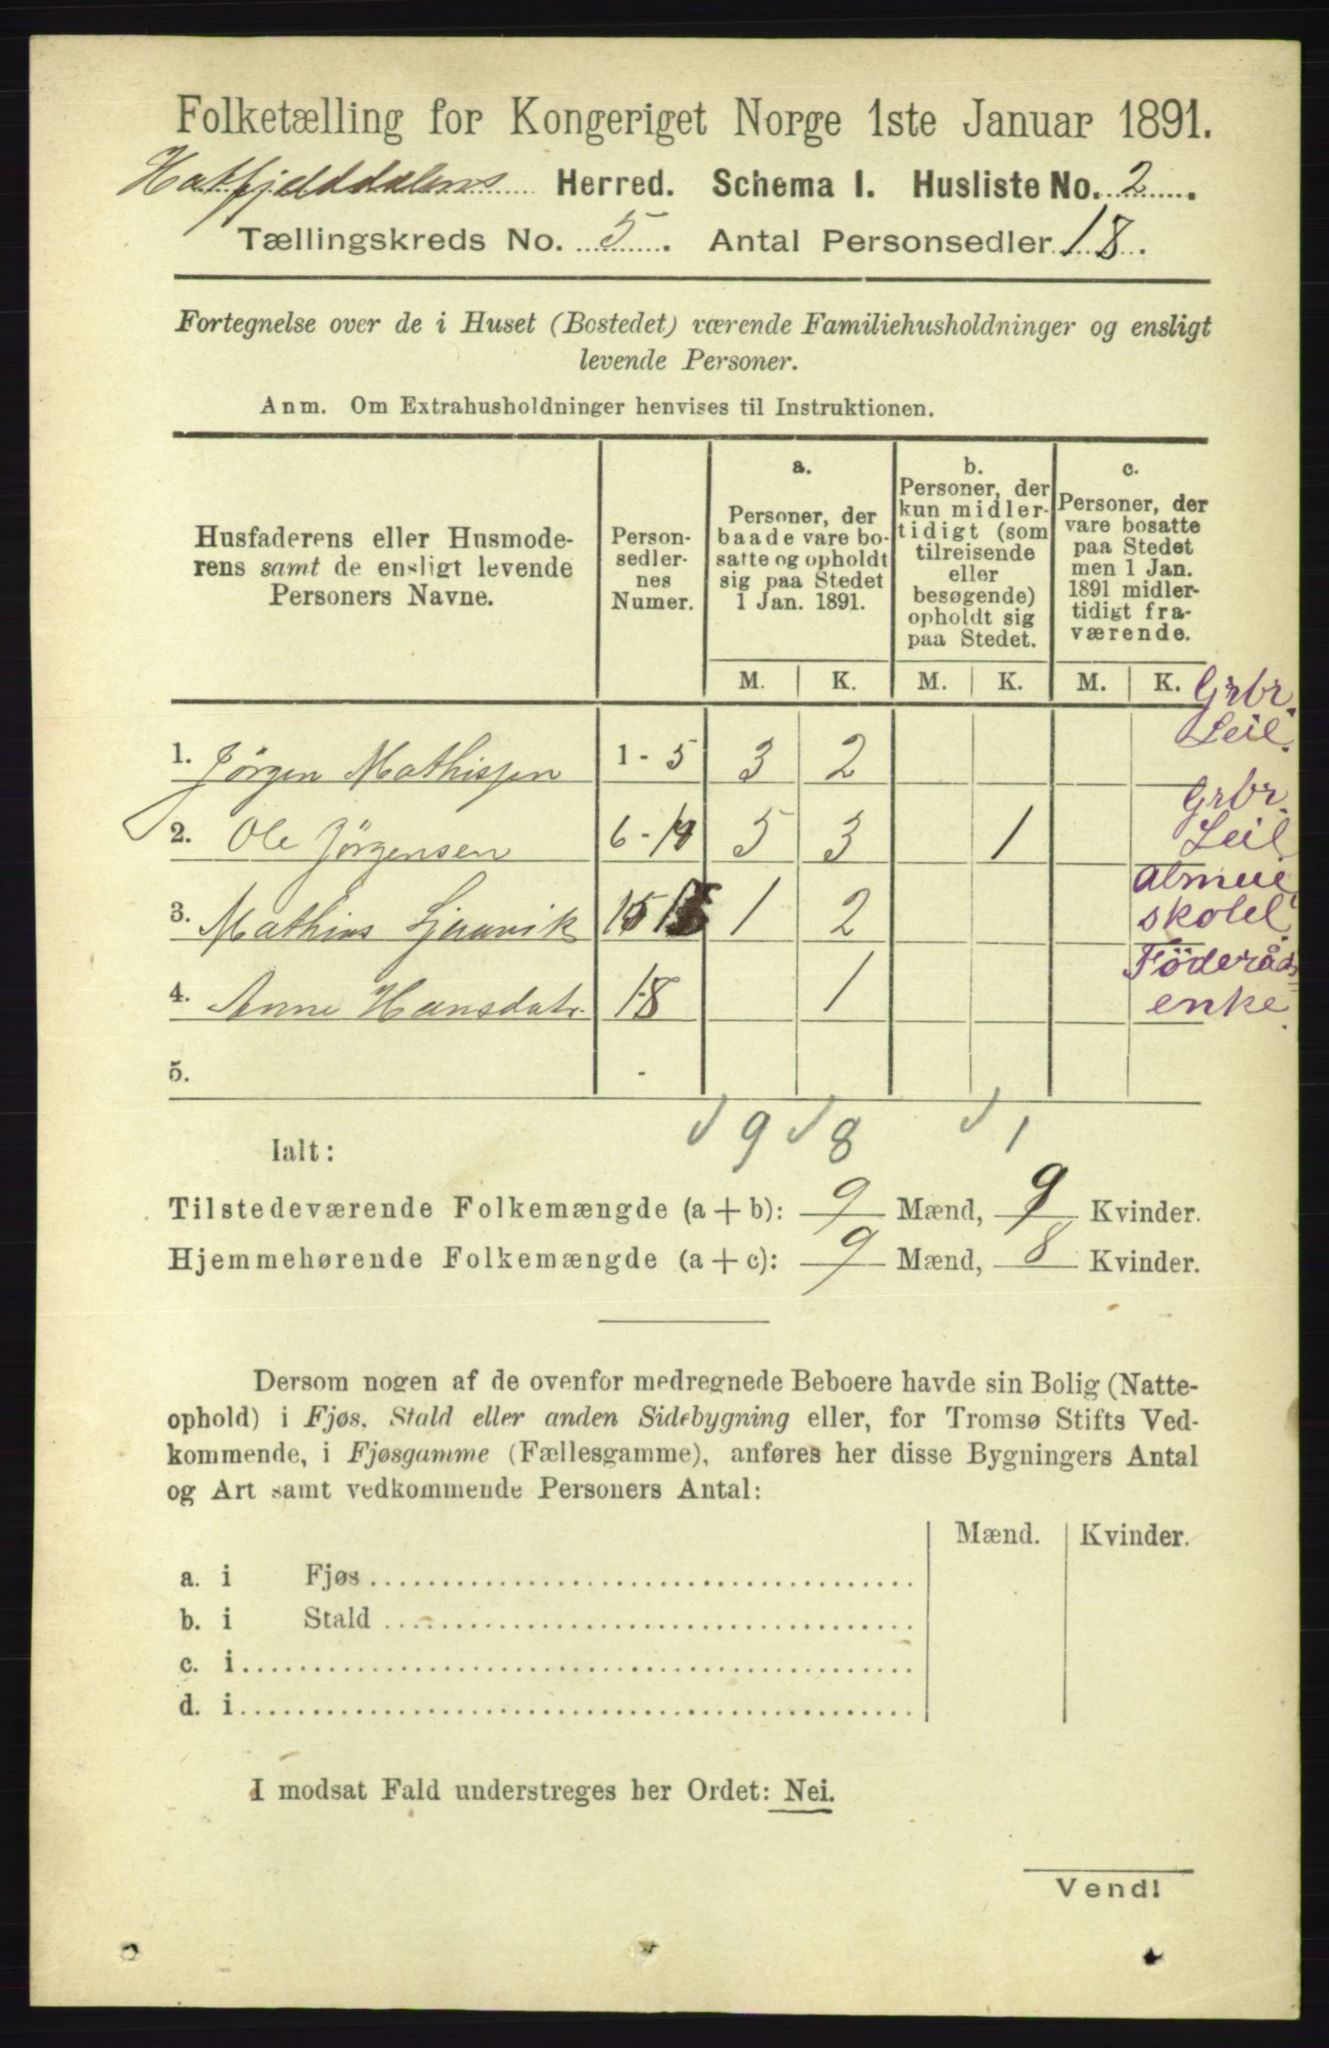 Folketælling for Kongeriget Norge 1ste Januar 1891.
Hatfjelddalens Herred. Schema I. Husliste No. 2.
Tællingskreds No. 5. Antal Personsedler 18.
Fortegnelse over de i Huset (Bostedet) værende Familiehusholdninger og ensligt
levende Personer.
Anm. Om Extrahusholdninger henvises til Instruktionen.
Husfaderens eller Husmode-
rens samt de ensligt levende
Personers Navne.
Person-
sedler-
nes
Numer.
a.
Personer, der
baade vare bo-
satte og opholdt
sig paa Stedet
1 Jan. 1891.
b.
Personer, der
kun midler-
tidigt (som
tilreisende
eller
besøgende)
opholdt sig
paa Stedet.
c.
Personer, der
vare bosatte
paa Stedet
men 1 Jan.
1891 midler-
tidigt fra-
værende.
M. K. M. K. M. K.
1. Jörgen Mathissen 1 - 5 3 2 Grbr. Leil.
2. Ole Jörgensen 6 - 5 3 1 Grbr. Leil.
3. Mathias 15 1 2 almue skolel.
4. Anne Hansdatr. 18 1 Föderåds= enke.
5. -
Ialt: 9 8 1
Tilstedeværende Folkemængde (a + b): 9 Mænd, 9 Kvinder.
Hjemmehørende Folkemængde (a + c): 9 Mænd, 8 Kvinder.
Dersom nogen af de ovenfor medregnede Beboere havde sin Bolig (Natte-
ophold) i Fjøs, Stald eller anden Sidebygning eller, for Tromsø Stifts Ved-
kommende, i Fjøsgamme (Fællesgamme), anføres her disse Bygningers Antal
og Art samt vedkommende Personers Antal:
Mænd. Kvinder.
a. i Fjøs
b. i Stald
c. i
d. i
I modsat Fald understreges her Ordet: Nei.
Vend!